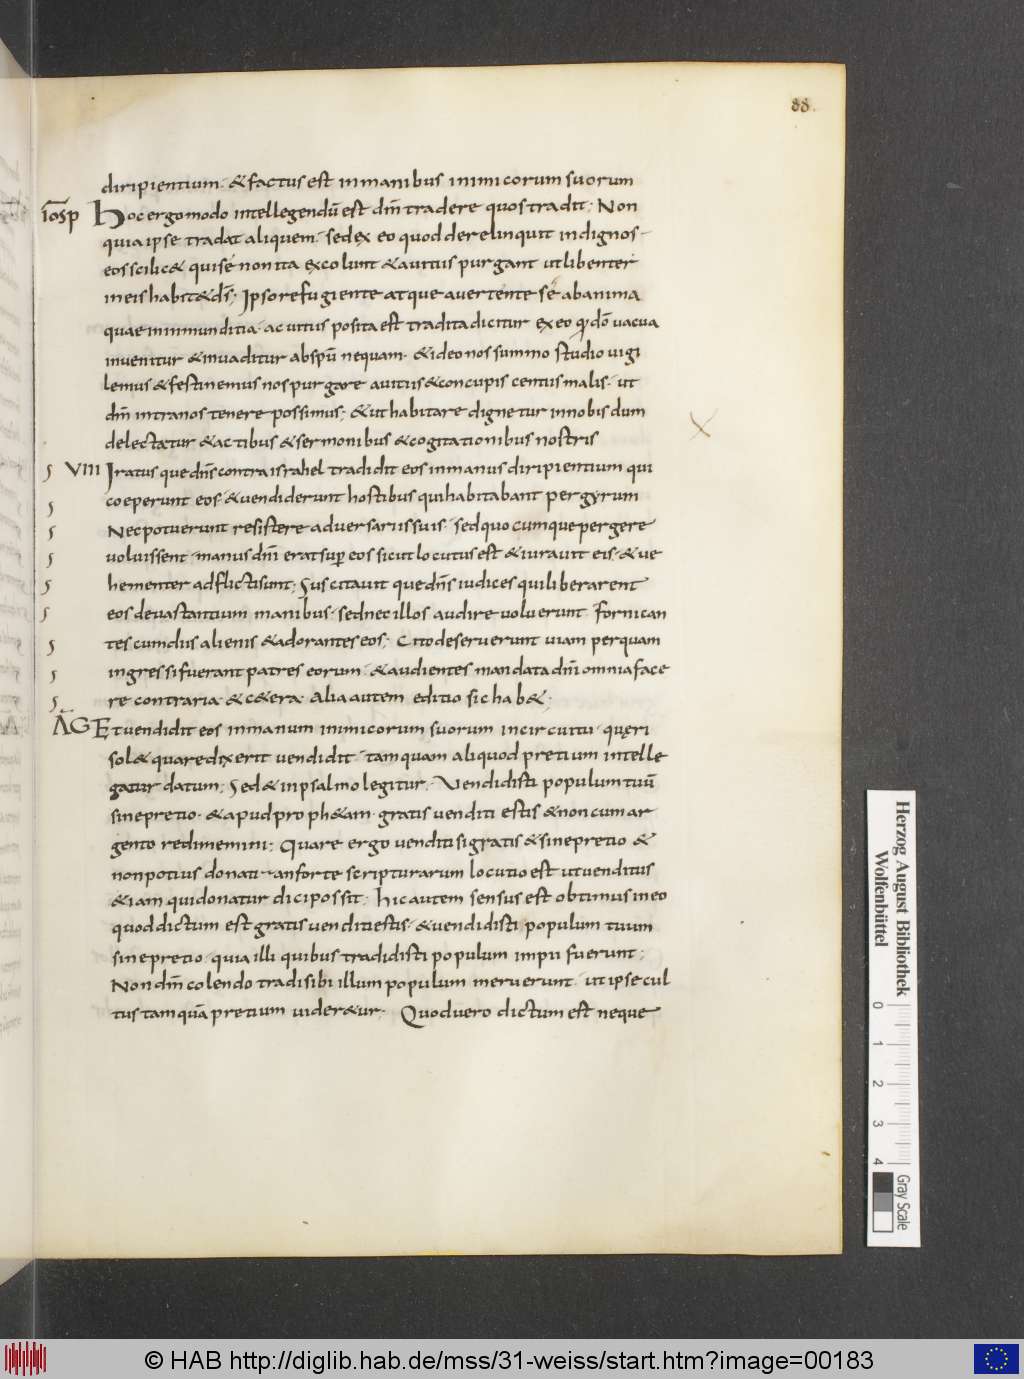 88.
diripientium· & factus est in manibus inimicorum suorum
iosp Hoc ergo modo intellegendū est dm̄ tradere quos tradit· Non
quia ipse tradat aliquem· sed ex eo quod derelinquit indignos·
eos scilic& qui sé non ita excolunt & a uitiis purgant ut libenter
in eis habit& ds̄; Ipso refugiente atque auertente sé ab anima
quae in inmunditia· ac uitiis posita est tradita dicitur ex eo qđ dō uacua
inuenitur & inuaditur ab spū nequam· & ideo nos summo studio uigi
lemus & festinemus nos purgare a uitiis & concupiscentiis malis· ut
dm̄ intra nos tenere possimus· & ut habitare dignetur in nobis dum
delectatur & actibus & sermonibus & cogitationibus nostris
VIII Iratusque dn̄s contra israhel tradidit eos in manus diripientium qui
coeperunt eos· & uendiderunt hostibus qui habitabant per gyrum
Nec potuerunt resistere aduersariis suis· sed quocumque pergere
uoluissent· manus dm̄ erat sup eos sicut locutus est & iurauit eis· & ue
hementer adflicti sunt; Suscitauitque dn̄s iudices qui liberarent
eos de uastantium manibus· sed nec illos audire uoluerunt fornican
tes cum diis alienis & adorantes eos; Cito deseruerunt uiam per quam
ingressi fuerant patres eorum· & audientes mandata dm̄ omnia face
re contraria· & c&era· Alia autem editio sic hab&·
AGE Et uendidit eos in manum inimicorum suorum in circuitu· queri
sol& quare dixerit uendidit· tamquam aliquod pretium intelle
gatur datum; Sed & in psalmo legitur· Uendidisti populum tuū
sine pretio· & apud proph&am· gratis uenditi estis & non cum ar
gento redimemini; Quare ergo uenditi si gratis & sine pretio &
non potius donati· an forte scripturarum locutio est ut uenditus
& iam qui donatur dici possit; Hic autem sensus est obtimus in eo
quod dictum est gratis uenditi estis· & uendidisti populum tuum
sine pretio· quia illi quibus tradidisti populum impii fuerunt;
Non dm̄ colendo tradi sibi illum populum meruerunt· ut ipse cul
tus tamquā pretium uider&ur· Quod uero dictum est neque
Herzog August Bibliothek
Wolfenbüttel
0 1 2 3 4
Gray Scale
© HAB http://diglib.hab.de/mss/31-weiss/start.htm?image=00183